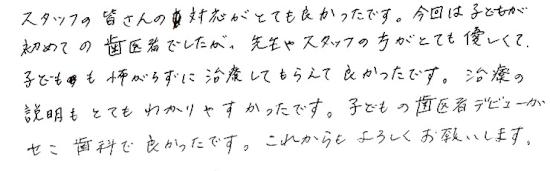 スタッフの皆さんの対応がとても良かったです。今回は子どもが
初めての歯医者でしたが、先生やスタッフの方がとても優しくて、
子どもも怖がらずに治療してもらえて良かったです。治療の
説明もとてもわかりやすかったです。子どもの歯医者デビューが
せこ歯科で良かったです。これからもよろしくお願いします。